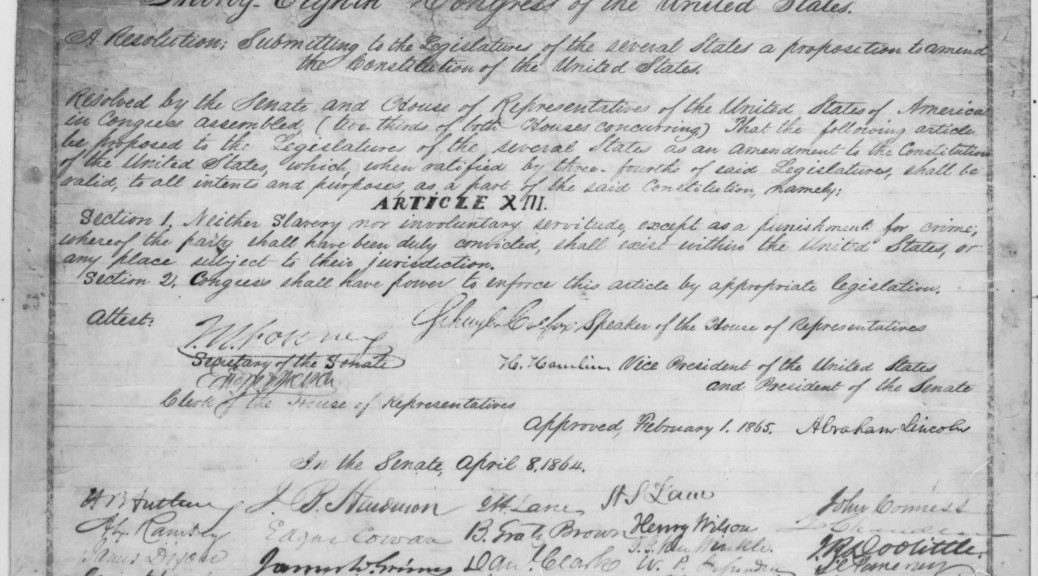 Thirty-Eighth Congress of the United States.
A Resolution; Submitting to the Legislatures of the several States a proposition to amend
the Constitution of the United States.
Resolved by the Senate and House of Representatives of the United States of America
in Congress assembled, (two-thirds of both Houses concurring) That the following article
be proposed to the Legislatures of the several States as an amendment to the Constitution
of the United States, which, when ratified by three-fourths of said Legislatures, shall be
valid, to all intents and purposes, as a part of the said Constitution, namely:
ARTICLE XIII.
Section 1. Neither Slavery nor involuntary servitude, except as a punishment for crime,
whereof the party shall have been duly convicted, shall exist within the United States, or
any place subject to their jurisdiction.
Section 2. Congress shall have power to enforce this article by appropriate legislation.
Attest:
Schuyler Colfax, Speaker of the House of Representatives
J. W. Forney
Secretary of the Senate
H. Hamlin Vice President of the United States
and President of the Senate
Clerk of the House of Representatives
Approved, February 1. 1865. Abraham Lincoln
In the Senate, April 8, 1864.
J. B. Henderson J. H. Lane H. S. Lane John Conness
Edgar Cowan B. Gratz Brown Henry Wilson
James Dixon James W. Grimes Dan. Clark W. P. Fessenden J. R. Doolittle